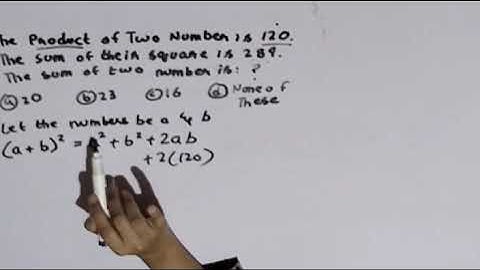 he Product of Two Number is 120.
The sum of their square is 289.
The sum of two number is: ?
(a) 20 (b) 23 (c) 16 (d) None of
These
Let the numbers be a & b
(a+b)² = a² + b² + 2ab
+ 2(120)